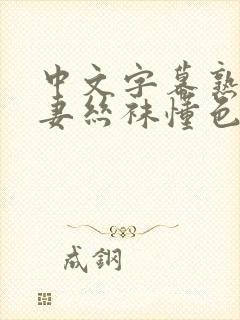 中文字幕熟
妻丝袜懂色
成鋼